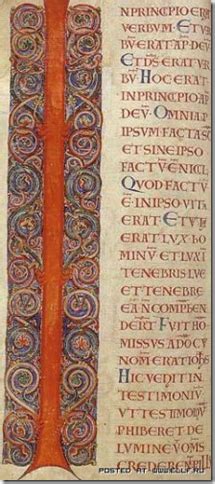 NPRINCIPIO ERAT
VERBUM · ET VER
BV ERAT AP DEV ·
ET DS ERAT VER
BV · HOC ERAT
INPRINCIPIO AP
DEV · OMNIA P
IPSVM FACTA SC
ET SINE IPSO
FACTV E NICHIL ·
QVOD FACTV E
INIPSO VITA
ERAT · ET VITA
ERAT LVX HO
MINV · ET LVX I
TENEBRIS LVC
ET TENEBRE
EA NCOMPHEN
DERT · FVIT HO
MISSVS A DO CV
NOM ERAT IOHS
HIC VENIT IN
TESTIMONIV
VT TESTIMONIV
PHIBERET DE
LVMINE VT OMS
CREDERENT P
POSTED AT